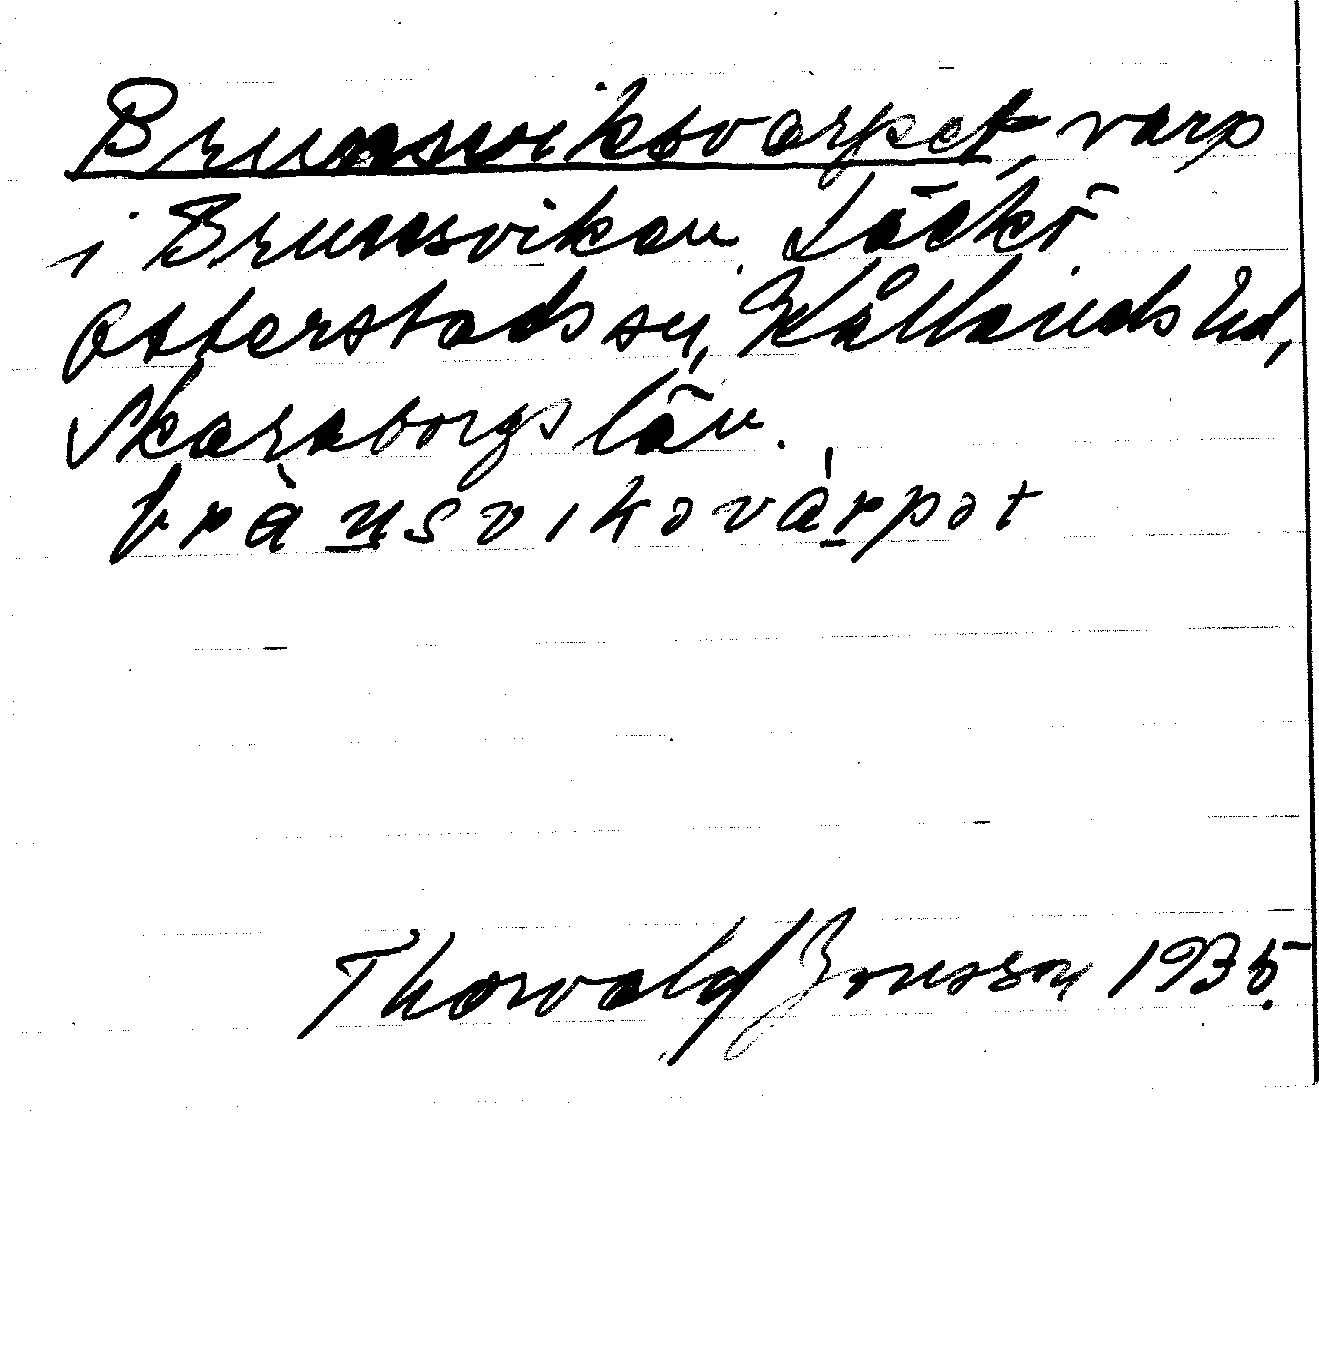 Brunnsviksvarpet, varp
i Brunnsviken Läckö
Otterstads sn, Kållands hd,
Skaraborgs län.
brànsvikəvárpət
Thorvald Jonsson 1935.